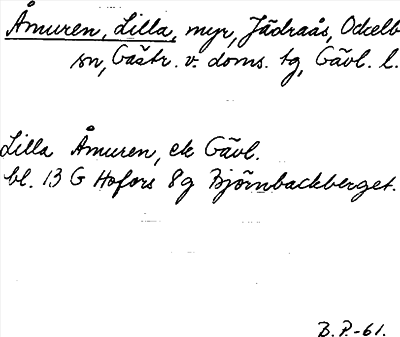 Åmuren, Lilla, myr, Jädraås, Ockelb
sn, Gästr. v. doms. tg, Gävl. l.
Lilla Åmuren, ek Gävl.
bl. 13 G Hofors 8g Björnbackberget.
B.P.-61.